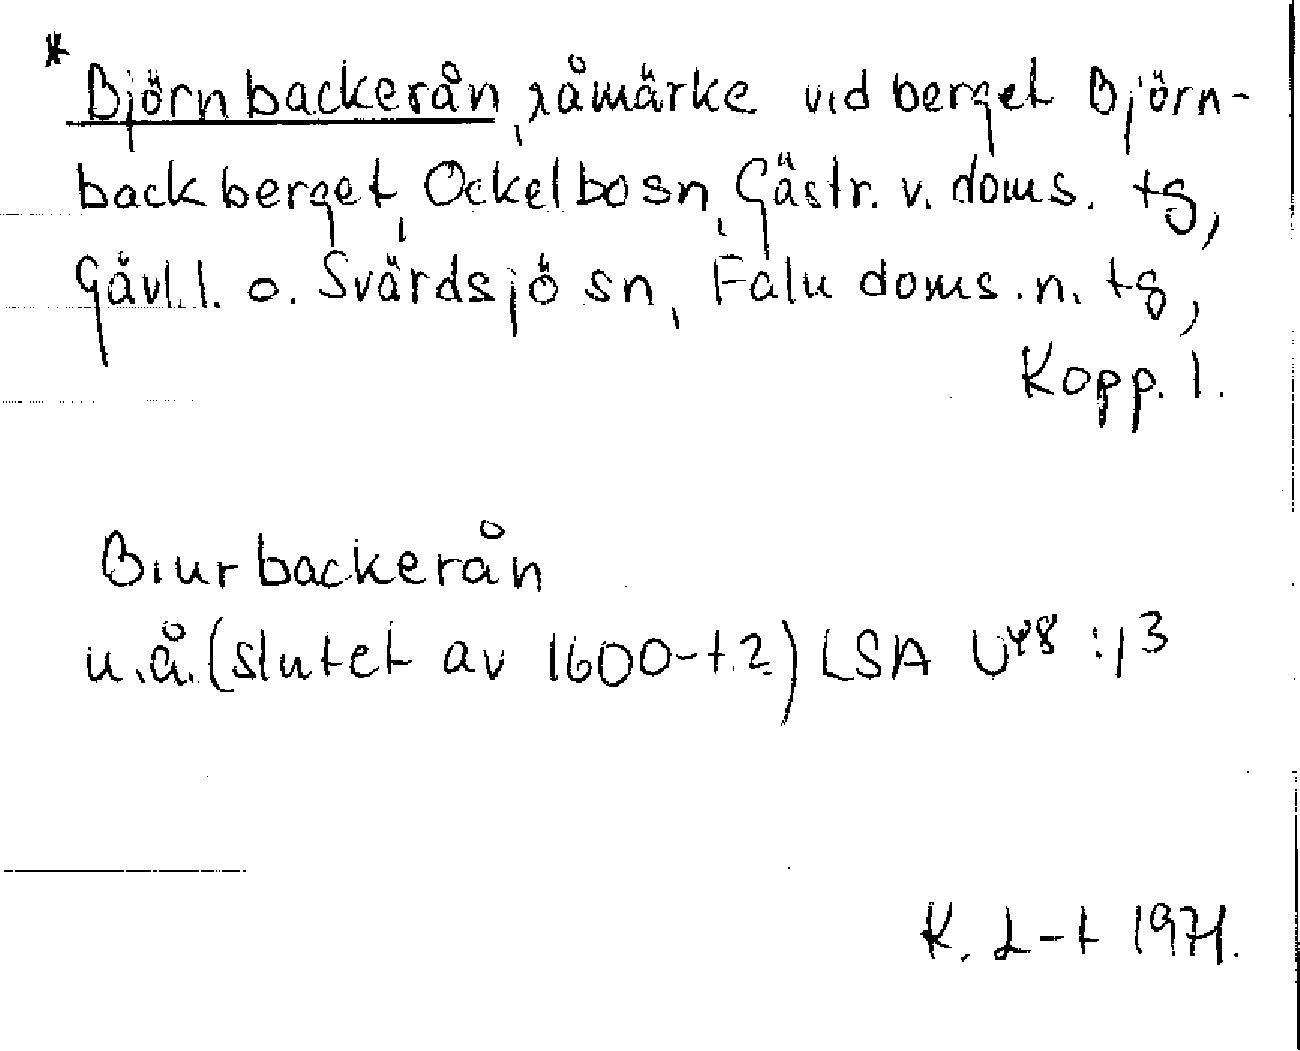 * Björnbackerån, råmärke vid berget Björn-
backberget, Ockelbo sn, Gästr. v. doms. tg,
Gävl. l. o. Svärdsjö sn, Falu doms. n. tg,
Kopp. l.
Biurbackerån
u.å. (slutet av 1600-t.?) LSA U48:13
K. L-t 1971.